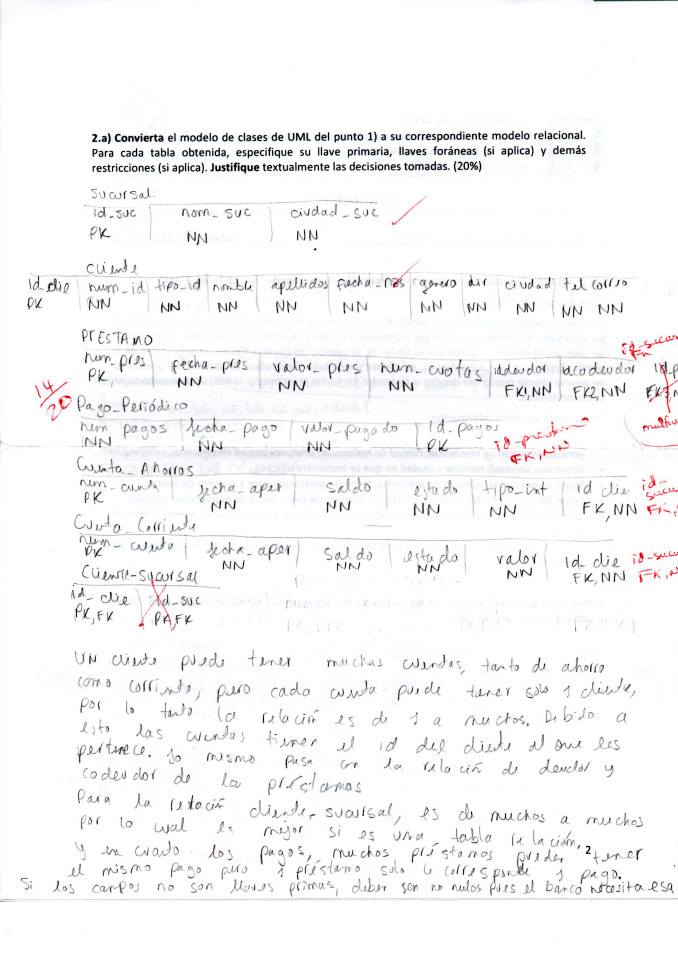 2.a) Convierta el modelo de clases de UML del punto 1) a su correspondiente modelo relacional.
Para cada tabla obtenida, especifique su llave primaria, llaves foráneas (si aplica) y demás
restricciones (si aplica). Justifique textualmente las decisiones tomadas. (20%)
Sucursal
id_suc nom_suc ciudad_suc
PK NN NN
cliente
id_clie num_id tipo_id nombre apellidos fecha_nas genero dir ciudad tel correo
PK NN NN NN NN NN NN NN NN NN NN
PRESTAMO
id-sucur
FK
num_pres fecha_pres valor_pres num_cuotas iddeudor idcodeudor id_p
PK NN NN NN FK1,NN FK2,NN FK3,N
14/20
Pago_Periódico
num pagos fecha_pago valor_pagado Id_pagos
NN NN NN PK
FK, NN
Cuenta_Ahorros
num_cuenta fecha_aper saldo estado tipo_int id clie id-sucu
PK NN NN NN NN FK,NN FK,
Cuenta_Corriente
num_cuenta fecha_aper saldo estado valor Id_clie id-sucu
PK NN NN NN NN FK,NN FK,N
Cliente-sucursal
id_clie id_suc
PK,FK PK,FK
UN cliente puede tener muchas cuentas, tanto de ahorro
como corriente, pero cada cuenta puede tener solo 1 cliente,
por lo tanto la relación es de 1 a muchos. Debido a
esto las cuentas tienen el id del cliente al que les
pertenece. Lo mismo pasa con la relación de deudor y
codeudor de los préstamos
Para la relación cliente-sucursal, es de muchos a muchos
por lo cual es mejor si es una tabla relación,
y en cuanto los pagos, muchos préstamos pueden 2 tener
el mismo pago pero 1 préstamo solo le corresponde 1 pago.
Si los campos no son llaves primas, deben ser no nulos pues el banco necesita esa